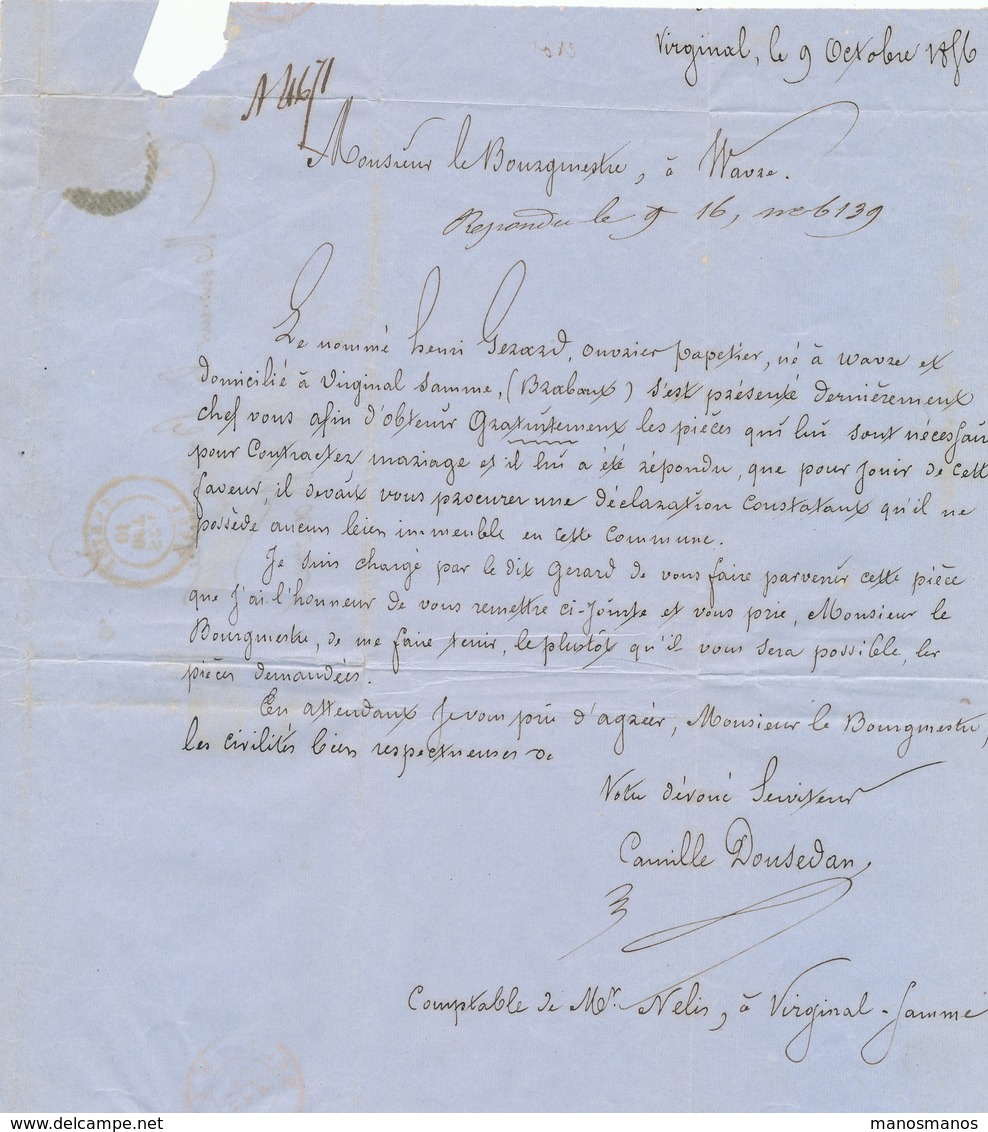 Virginal, le 9 Octobre 1856
N 4671
Monsieur le Bourgmestre, à Wavre.
Repondu le 16, no 6139
Le nommé henri Gerard, ouvrier papetier, né à wavre et
domicilié à Virginal Samme, (Brabant) s'est présenté dernièrement
chef vous afin d'obtenir Gratuitement les pièces qui lui sont nécessair
pour Contracter mariage et il lui a été répondu, que pour jouir de cette
faveur, il devait vous procurer une déclaration Constatant qu'il ne
possède aucun bien immeuble en cette Commune.
Je suis chargé par le dit Gerard de vous faire parvenir cette pièce
que J'ai l'honneur de vous remettre ci-Jointe et vous prie, Monsieur le
Bourgmestre, de me faire tenir, le plustôt qu'il vous sera possible, les
pièces demandées.
En attendant Je vous prie d'agréer, Monsieur le Bourgmestre,
les civilités bien respectueuses de
Votre dévoué Serviteur
Camille Dousedan
Comptable de Mr Nelis, à Virginal-Samme
manosmanos